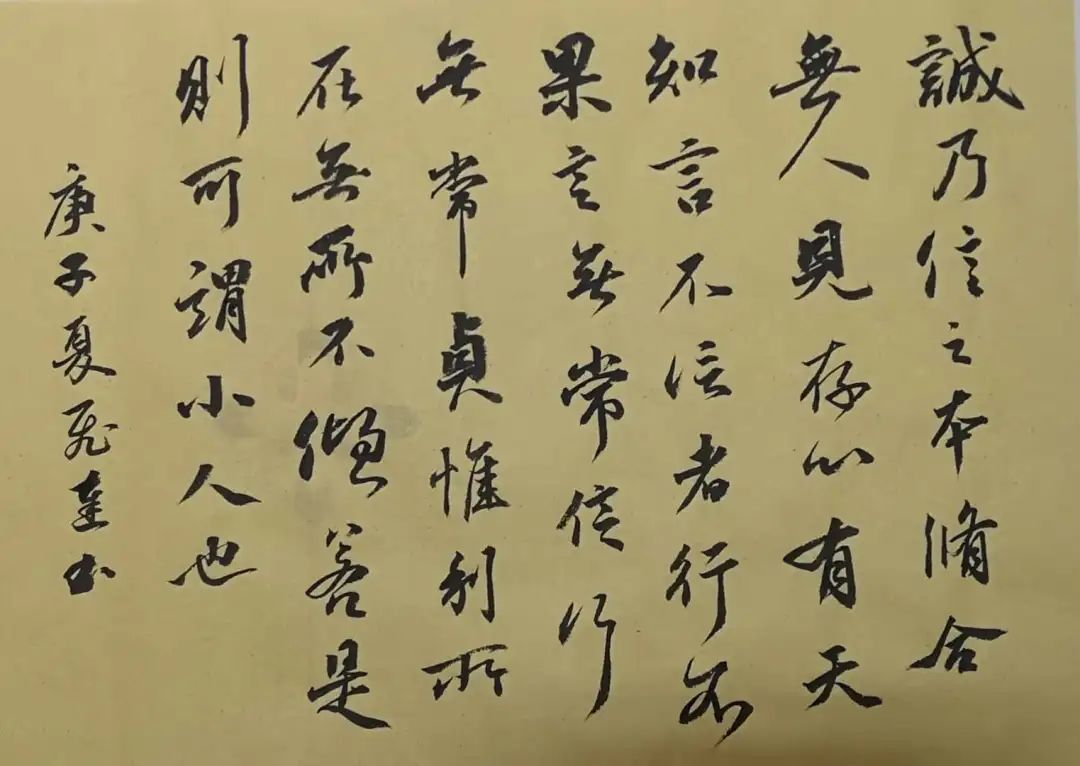 誠乃信之本脩合
無人見存心有天
知言不信者行不
果言無常信行
無常貞惟利所
在無所不傾若是
則可謂小人也
庚子夏 書